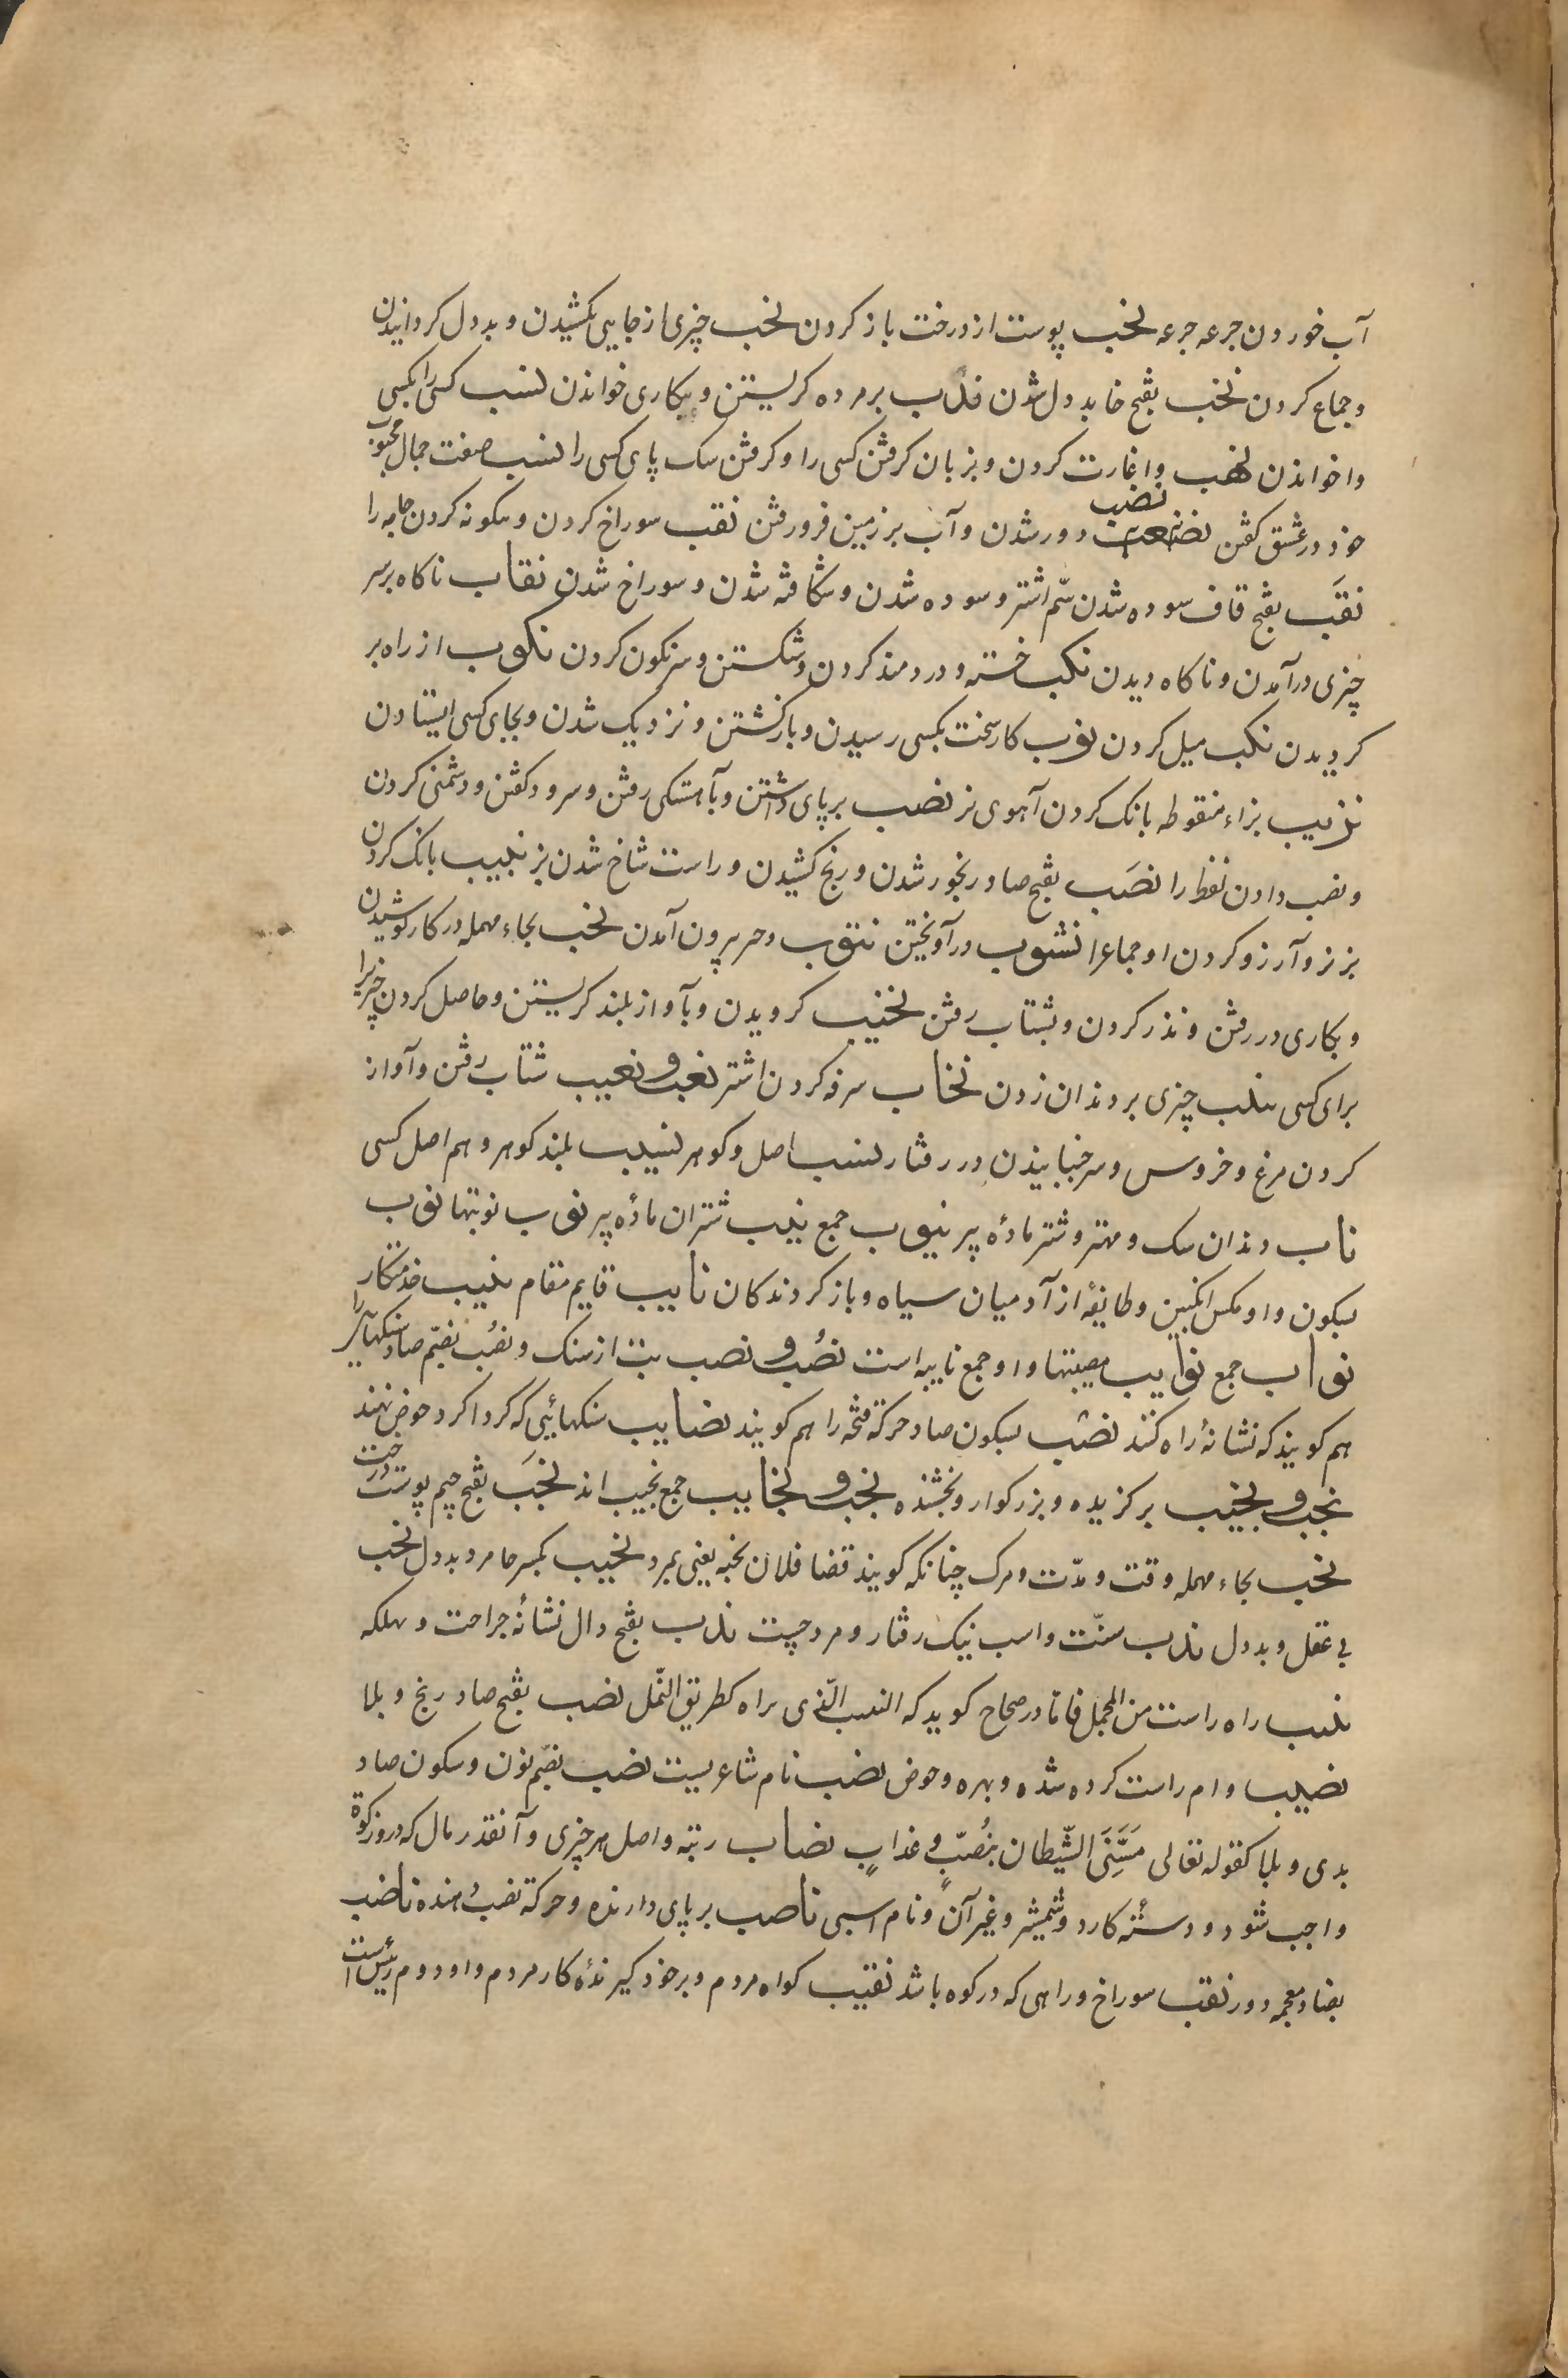 آب خوردن جرعه جرعه نخب پوست از درخت باز کردن نخب چیزی از جایی بکشیدن و بددل کردانیدن
و جماع کردن نخب بفتح خا بددل شدن ندب بر مرده کریستن و بیکاری خواندن نسب کسی را بکسی
وا خواندن نهب وا غارت کردن و بزبان کرفتن کسی را و کرفتن سک پای کسی را نسب صفت جمال محبوب
خود در عشق کفتن نضب دور شدن و آب بر زمین فرو رفتن نقب سوراخ کردن و سکونه کردن جامه را
نقَب بفتح قاف سوده شدن سُم اشتر و سوده شدن و شکافته شدن و سوراخ شدن نقاب ناکاه بر سر
چیزی درآمدن و ناکاه دیدن نکب خسته و دردمند کردن و شکستن و سرنکون کردن نکوب از راه بر
کردیدن نکب میل کردن نوب کار سخت بکسی رسیدن و بازکشتن و نزدیک شدن و بجای کسی ایستادن
نزیب بزاء منقوطه بانک کردن آهوی نر نصب بر پای داشتن و بآهستکی رفتن و سرود کفتن و دشمنی کردن
و نصب دادن لفظ را نصَب بفتح صاد رنجور شدن و رنج کشیدن و راست شاخ شدن بز نبیب بانک کردن
بز نر و آرزو کردن او جماع را نشوب درآویختن نتوب وحر بیرون آمدن نحب بحاء مهمله در کار کوشیدن
و بکاری در رفتن و نذر کردن و بشتاب رفتن نحیب کرویدن و بآواز بلند کریستن و حاصل کردن چیز را
برای کسی نیب چیزی بر دندان زدن نحاب سرفه کردن اشتر نعب و نعیب شتاب رفتن و آواز
کردن مرغ و خروس و سر جنبانیدن در رفتار نسب اصل و کوهر نسیب بلند کوهر و هم اصل کسی
ناب دندان سک و مهتر و شتر مادهٔ پیر نیوب جمع نیب شتران مادهٔ پیر نوب نوبتها نوب
بسکون واو مکس انکبین و طایفهٔ از آدمیان سیاه و بازکردندکان نایب قایم مقام منیب خدمتکار
نواب جمع نوایب مصیبتها و او جمع نایبه است نصُب و نصب بت از سنک و نصُب بضمّ صاد سنکها را
هم کویند که نشانهٔ راه کنند نصب بسکون صاد حرکة فتحه را هم کویند نصایب سنکهائیی که کرداکرد حوض نهند
نجب و نجیب برکزیده و بزرکوار و بخشنده نجب و نجایب جمع نجیب اند نجَب بفتح جیم پوست درخت
نحب بحاء مهمله وقت و مدّت و مرک چنانکه کویند قضا فلان نحبه یعنی بمرد نخیب بکسر خا مرد بددل نخب
بی عقل و بددل ندب سنّت و اسب نیک رفتار و مرد چست ندب بفتح دال نشانهٔ جراحت و مهلکه
نیسب راه راست من المجمل فاما در صحاح کوید که النیسب الّذی براه کطریق النّمل نصب بفتح صاد رنج و بلا
نصیب دام راست کرده شده و بهره و حوض نصیب نام شاعریست نصب بضمّ نون و سکون صاد
بدی و بلا کقوله تعالی مَسَّنِیَ الشّیطان بِنُصبٍ و عذابٍ نصاب رتبه و اصل هر چیزی و آنقدر مال که درو زکوة
واجب شود و دستهٔ کارد و شمشیر و غیر آن و نام اسبی ناصب بر پای دارنده و حرکة نصب دهنده ناضب
بضاد معجمه دور نقب سوراخ و راهی که در کوه باشد نقیب کواه مردم و برخود کیرندهٔ کار مردم و او دوم رئیس است